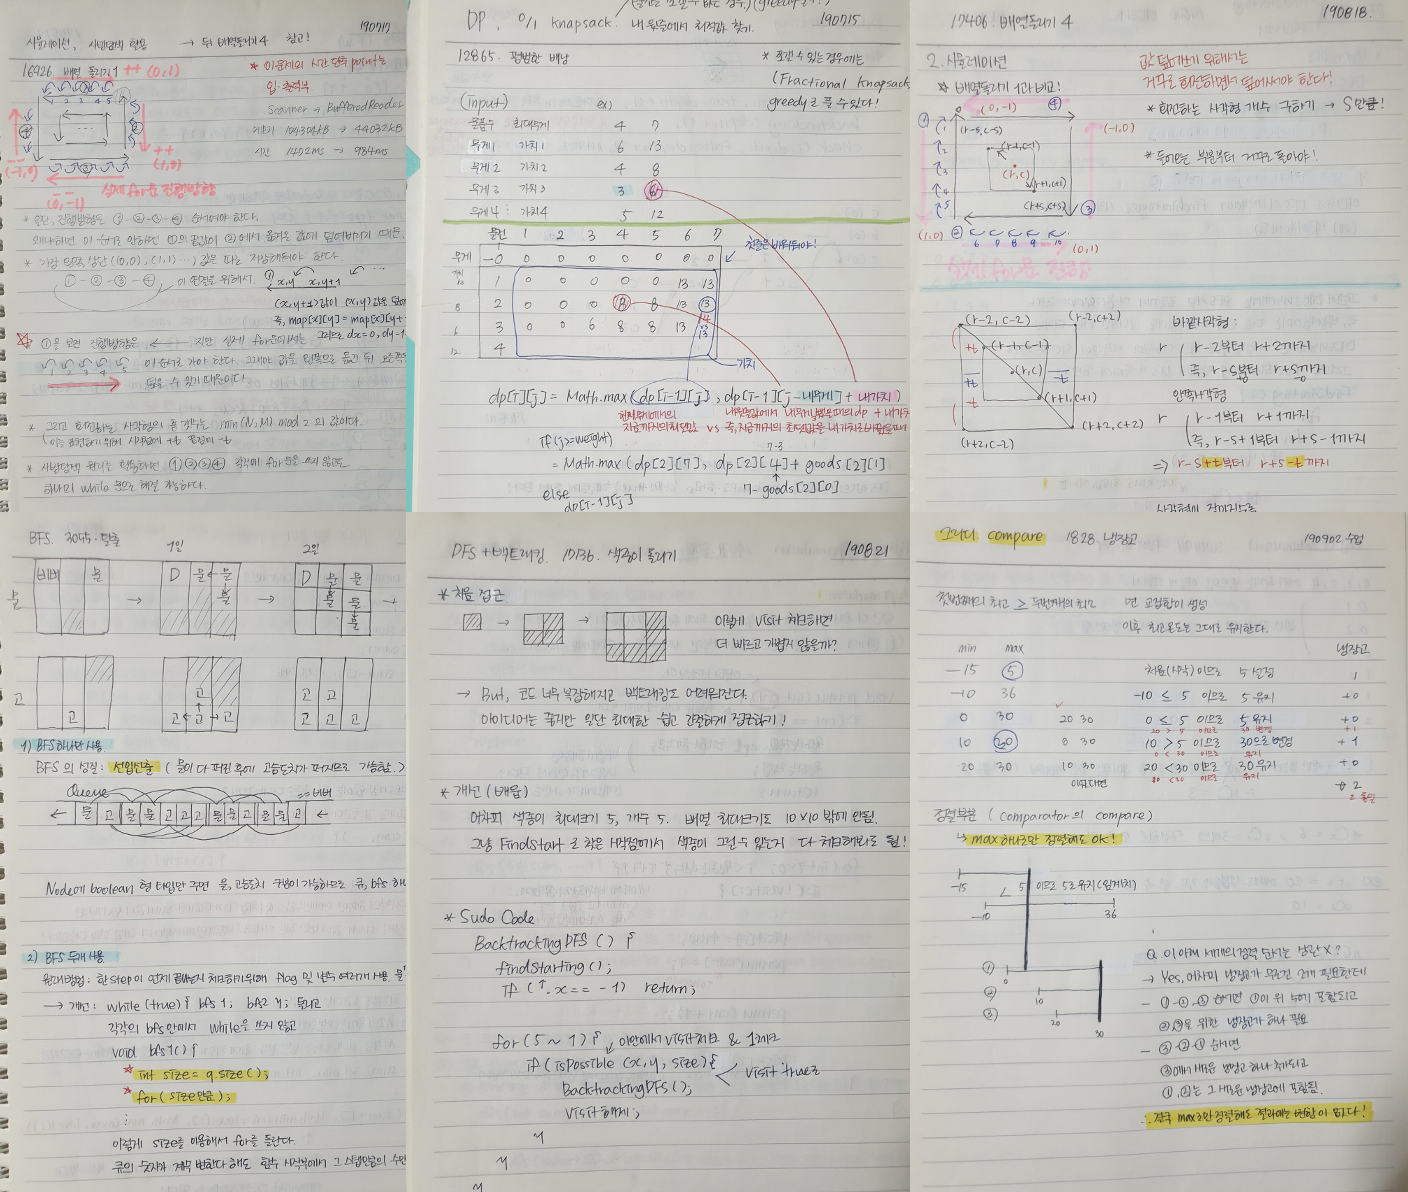 190717
시뮬레이션, 사방탐색 활용 → 뒤 배열돌리기 4 참고!
16926. 배열 돌리기 1 ++ (0,1)
* 이 문제의 시간 단축 point는
입·출력부
Scanner → BufferedReader
메모리 104304kB → 44032kB
시간 1472ms → 984ms
1 2 3 4 5
++
(1,0)
--
(-1,0)
--
(0,-1)
실제 for문 진행방향
* 또한, 진행방향도 ①-②-③-④ 순이어야 한다.
* 가장 왼쪽 상단 (0,0), (1,1) ...) 값은 따로 저장해둬야 한다.
①-②-③-④ 이 연결을 위해서.
x,y x,y+1
즉, map[x][y] = map[x][y+
이 순서로 가야 한다. 그래야 값을 왼쪽으로 옮긴 뒤
담을 수 있기 때문이다.
* 그리고 회전하는 사각형의 총 갯수는 min(N,M) mod 2 의 값이다.
하나의 while 문으로 해결 가능하다.
DP. 0/1 knapsack.
190715
12865. 평범한 배낭
* 쪼갤 수 있는 경우에는
(Fractional Knapsack
greedy로 풀 수 있다!
(Input) ex)
물품수 최대무게 4 7
무게1 가치1 6 13
무게2 가치2 4 8
무게3 가치3 3 6
무게4 가치4 5 12
물건 1 2 3 4 5 6 7
무게 0 0 0 0 0 0 0 0
첫줄은 비워둬야!
1 0 0 0 0 0 13 13
2 0 0 0 8 8 13 13
3 0 0 6 8 8 13
4
가치
dp[i][j] = Math.max(dp[i-1][j], dp[i-1][j-내무게] + 내가치)
if(j>=weight)
7-3
= Math.max(dp[2][7], dp[2][4] + goods[2][1]
7-goods[2][0]
else
dp[i-1][j]
17406. 배열돌리기 4
190818.
2. 시뮬레이션
값 덮어쓰기 위해서는
거꾸로 회전하면서 덮어써야 한다!
* 배열돌리기 1과 비교!
* 회전하는 사각형 개수 구하기 → S만큼!
(0,-1) ④
①
(r-s, c-s)
(-1,0)
(r-1, c-1)
(r,c)
(r+1, c+1)
(r+s, c+s)
③
(1,0) ② 6 7 8 9 10
(0,1)
실제 for문 진행방향
(r-2, c-2) (r-2, c+2)
(r-1, c-1)
(r,c)
(r+1, c+1)
(r+2, c-2) (r+2, c+2)
바깥사각형:
r r-2부터 r+2까지
즉, r-s부터 r+s까지
안쪽사각형
r r-1부터 r+1까지
즉, r-s+1부터 r+s-1까지
⇒ r-s+t부터 r+s-t까지
BFS. 3055. 탈출
1일 2일
물
비버 물
D 물 물
물
D 물 물
물 물
물
고
고
고
고 고 고
고 고
고 고
1) BFS 하나만 사용
BFS의 성질: 선입선출 (물이 다 퍼진 후에 고슴도치가 퍼지므로 가능함.)
Queue
← 물 고 물 물 고 고 고 물 물 고 물 물 고 ←
Node에 boolean 형 타입만 주면 물, 고슴도치 구분이 가능하므로 큐, bfs 하나
2) BFS 두개 사용
→ 개선: while(true){ bfs1; bfs2 }; 돌리고
각각의 bfs안에서 while을 쓰지 않고
void bfs1() {
* int size = q.size();
* for(size만큼);
⋮
이렇게 size를 이용해서 for를 돌린다.
DFS + 백트래킹. 17136. 색종이 붙이기
190821
* 처음 접근
이렇게 visit 체크하면
더 빠르고 가볍지 않을까?
→ But, 코드 너무 복잡해지고 백트래킹도 어려워진다.
아이디어는 좋지만 일단 최대한 쉽고 간결하게 접근하기!
* 개선 (배움)
어차피 색종이 최대크기 5, 개수 5. 배열 최대크기도 10x10 밖에 안됨.
* Sudo Code
BacktrackingDFS () {
findStarting();
if (↑.x == -1) return;
for(5 ~ 1) {
이안에서 visit체크 & 1체크
if(isPossible (x,y, size) {
visit true로
BacktrackingDFS();
visit 해제;
}
}
}
그리디 compare 1828. 냉장고
190902 수업
첫번째의 최고 ≥ 두번째의 최저 면 교집합이 생성
이후 최고온도는 그대로 유지한다.
min max 냉장고
-15 5 처음(시작) 이므로 5 설정 1
-10 36 -10 ≤ 5 이므로 5 유지 +0
0 30 20 30 0 ≤ 5 이므로 5 유지 +0
10 20 0 30 10 > 5 이므로 30으로 변경 +1
20 30 10 30 20 < 30 이므로 30 유지 +0
이었다면
2
2 동일
정렬부분 (comparator의 compare)
↳ max 하나로만 정렬해도 ok!
-15 < 5 이므로 5로 유지 (임계치)
-10 36
① 0
② 10
③ 20
30
Q. 이 아래 세개의 정렬 순서는 상관 X?
→ Yes. 어차피 냉장고가 무조건 2개 필요한데
- ①-②-③ 순이면 ①이 위 5에 포함되고
②③을 위한 냉장고가 하나 필요
- ③-②-① 순이면
③에서 새로운 냉장고 하나 추가되고
①, ②는 그 새로운 냉장고에 포함됨.
∴ 결국 max로만 정렬해도 결과에는 변함이 없다!